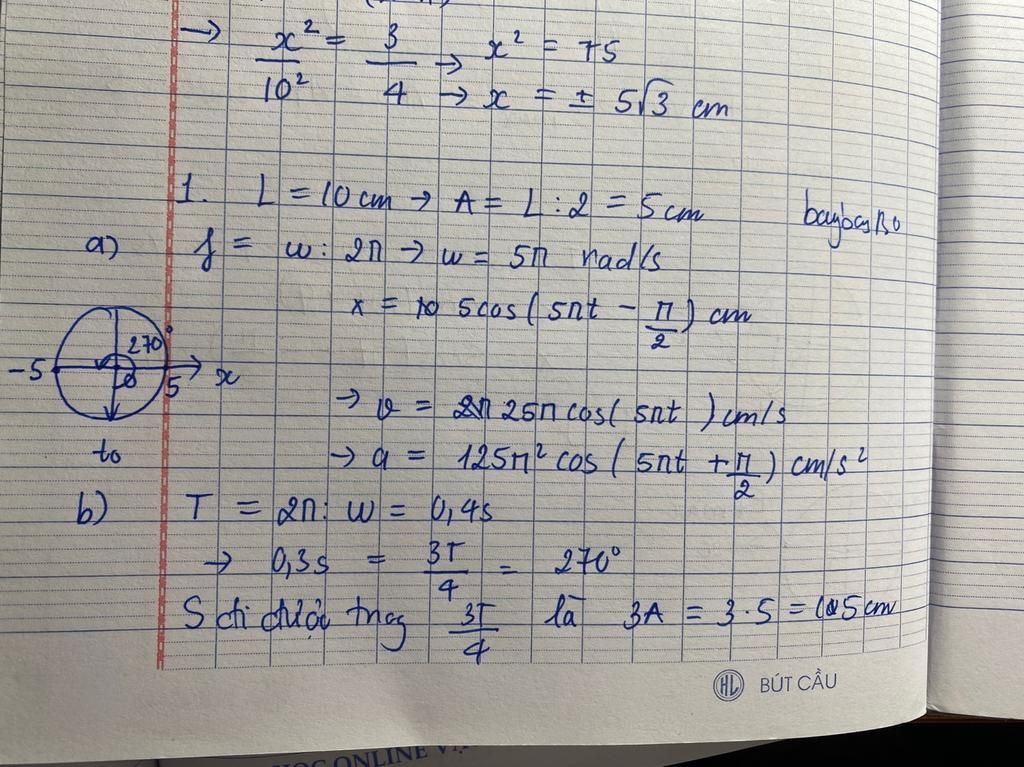 → x² / 10² = 3 / 4 → x² = 75
→ x = ± 5√3 cm
1. L = 10 cm → A = L : 2 = 5 cm
a) f = w : 2π → w = 5π rad/s
x = 5cos(5πt - π/2) cm
270°
-5 0 5 x
t0
→ v = 25π cos(5πt) cm/s
→ a = 125π² cos(5πt + π/2) cm/s²
b) T = 2π : w = 0,4s
→ 0,3s = 3T/4 = 270°
S đi được trog 3T/4 là 3A = 3.5 = 15 cm
HL BÚT CẦU
ONLINE